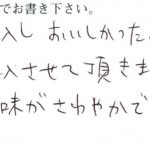 でお書き下さい。
入し おいしかった
入させて頂きま
味がさわやかで